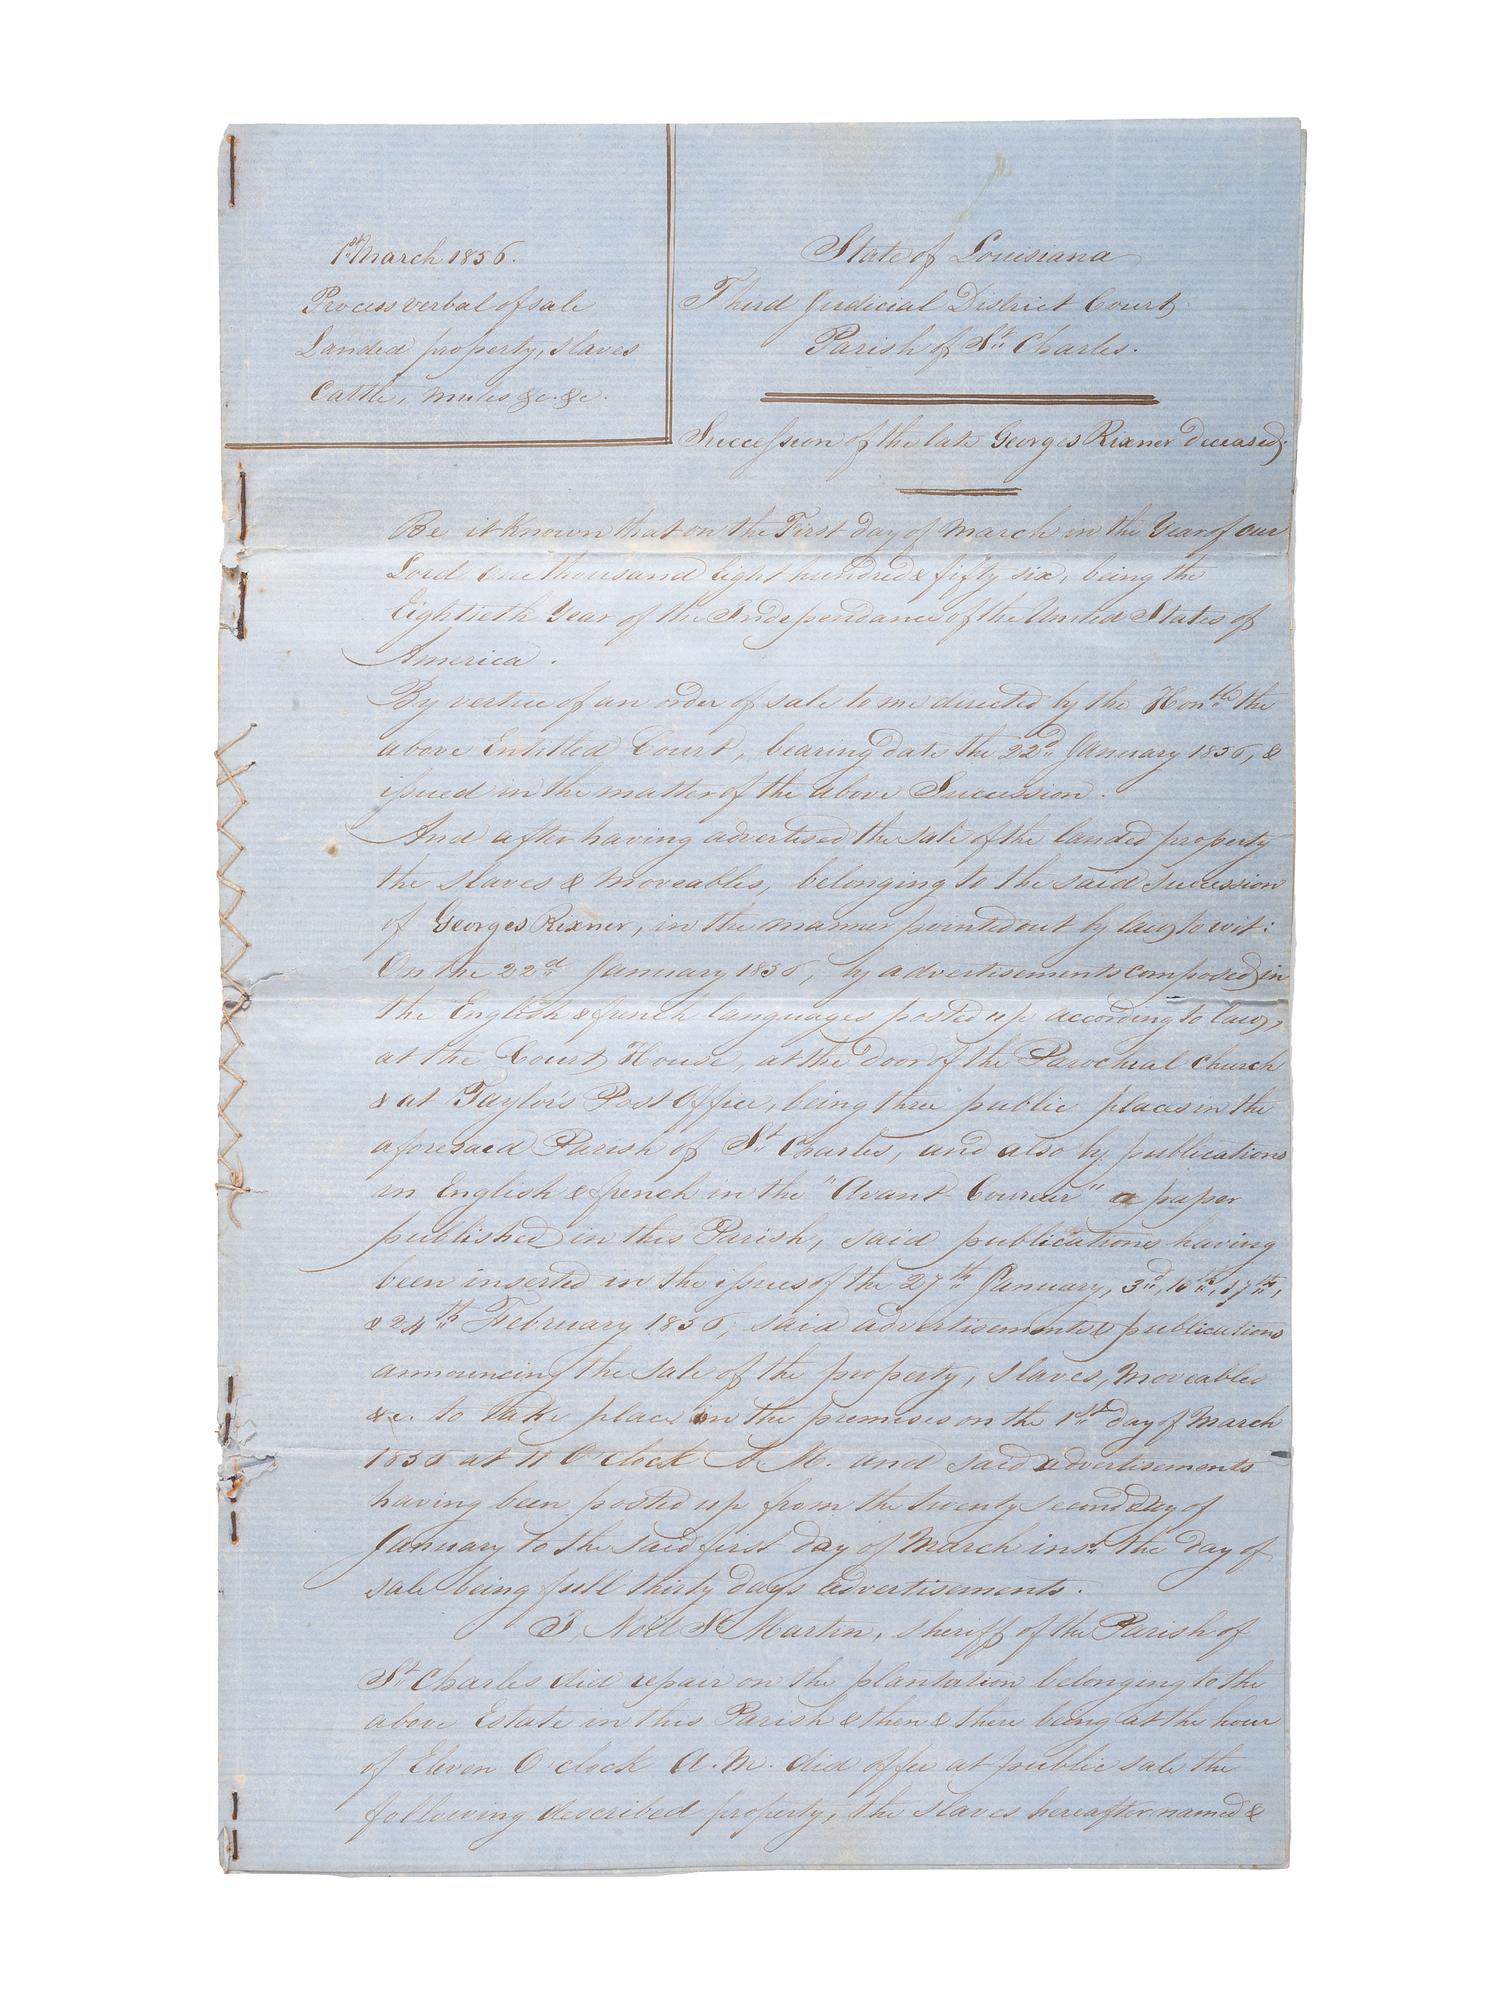 1st March 1856.
Process verbal of sale
Landed property, slaves
Cattle, mules &c. &c.
State of Louisiana
Third Judicial District Court
Parish of St. Charles.
Succession of the late Georges Rixner deceased.
Be it known that on the First day of March in the Year of our
Lord One thousand Eight hundred & fifty six, being the
Eightieth Year of the Independance of the United States of
America.
By vertue of an order of sale to me directed by the Honble the
above Entitled Court, bearing date the 22d January 1856, &
issued in the matter of the above Succession.
And after having advertised the sale of the landed property
the slaves & moveables, belonging to the said succession
of Georges Rixner, in the manner pointed out by law, to wit:
On the 22d January 1856, by advertisements composed in
the English & french languages posted up according to law,
at the Court House, at the door of the Parochial Church
& at Taylor's Post Office, being three public places in the
aforesaid Parish of St. Charles, and also by publications
in English & french in the "Avant Coureur" a paper
published in this Parish, said publications having
been inserted in the issues of the 27th January, 3d, 10th, 17th,
& 24th February 1856, said advertisements & publications
announcing the sale of the property, slaves, moveables
&c. to take place in the premises on the 1st day of March
1856 at 11 O'clock A.M. and said advertisements
having been posted up from the twenty second day of
January to the said first day of March inst. the day of
sale being full thirty days advertisements.
I, Noel St Martin, sheriff of the Parish of
St Charles did repair on the plantation belonging to the
above Estate in this Parish & then & there being at the hour
of Eleven O'clock A.M. did offer at public sale the
following described property, the slaves hereafter named &